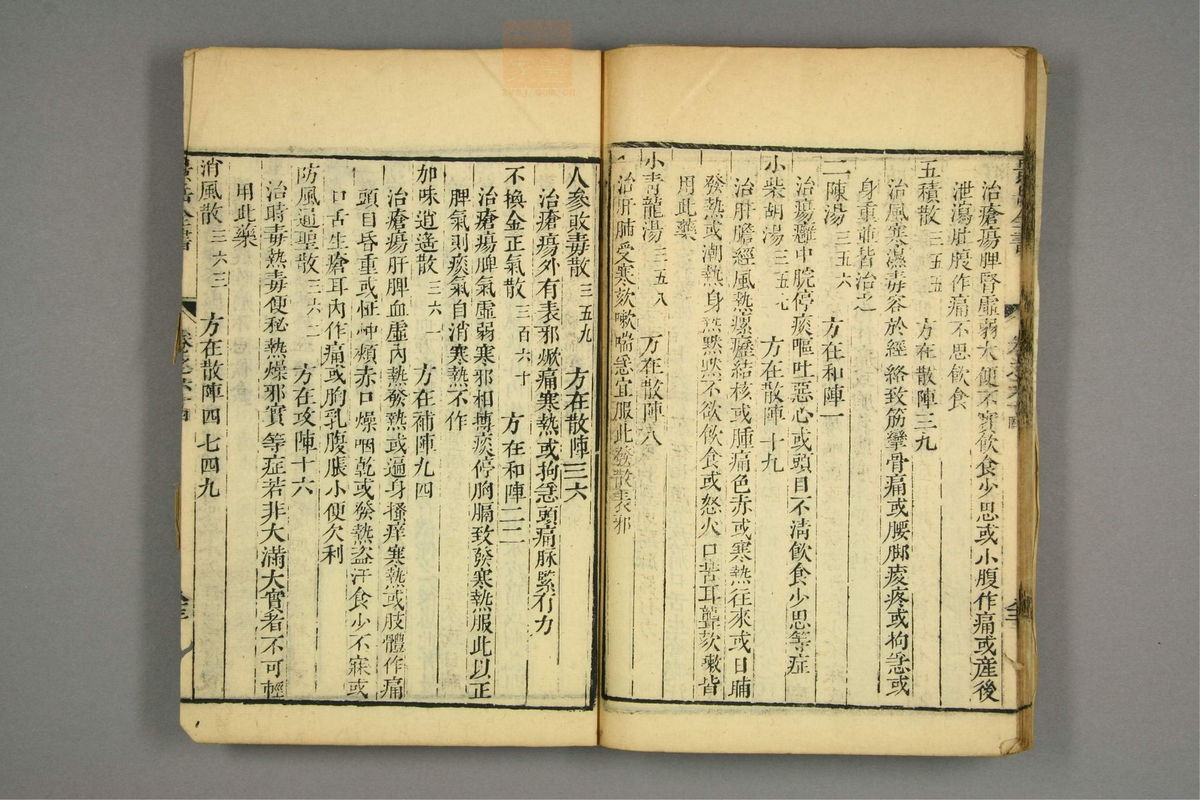 治瘡瘍脾腎虛弱大便不實飲食少思或小腹作痛或產後
泄瀉肚腹作痛不思飲食
五積散三五五　方在散陣三九
治風寒濕毒客於經絡致筋攣骨痛或腰脚痠疼或拘急或
身重並皆治之
二陳湯三五六　方在和陣一
治瘍癰中脘停痰嘔吐惡心或頭目不清飲食少思等症
小柴胡湯三五七　方在散陣十九
治肝膽經風熱瘰癧結核或腫痛色赤或寒熱往來或日晡
發熱或潮熱身熱默默不欲飲食或怒火口苦耳聾欬嗽皆
用此藥
小青龍湯三五八　方在散陣八
治肝肺受寒欬嗽喘急宜服此發散表邪
人參敗毒散三五九　方在散陣三六
治瘡瘍外有表邪嗽痛寒熱或拘急頭痛脉緊有力
不換金正氣散三百六十　方在和陣二二
治瘡瘍脾氣虛弱寒邪相摶痰停胸膈致發寒熱服此以正
脾氣則痰氣自消寒熱不作
加味逍遙散三六一　方在補陣九四
治瘡瘍肝脾血虛內熱發熱或遍身搔痒寒熱或肢體作痛
頭目昏重或怔忡頰赤口燥咽乾或發熱盜汗食少不寐或
口舌生瘡耳內作痛或胸乳腹脹小便欠利
防風通聖散三六二　方在攻陣十六
治時毒熱毒便秘熱燥邪實等症若非大滿大實者不可輕
用此藥
消風散三六三　方在散陣四七四九